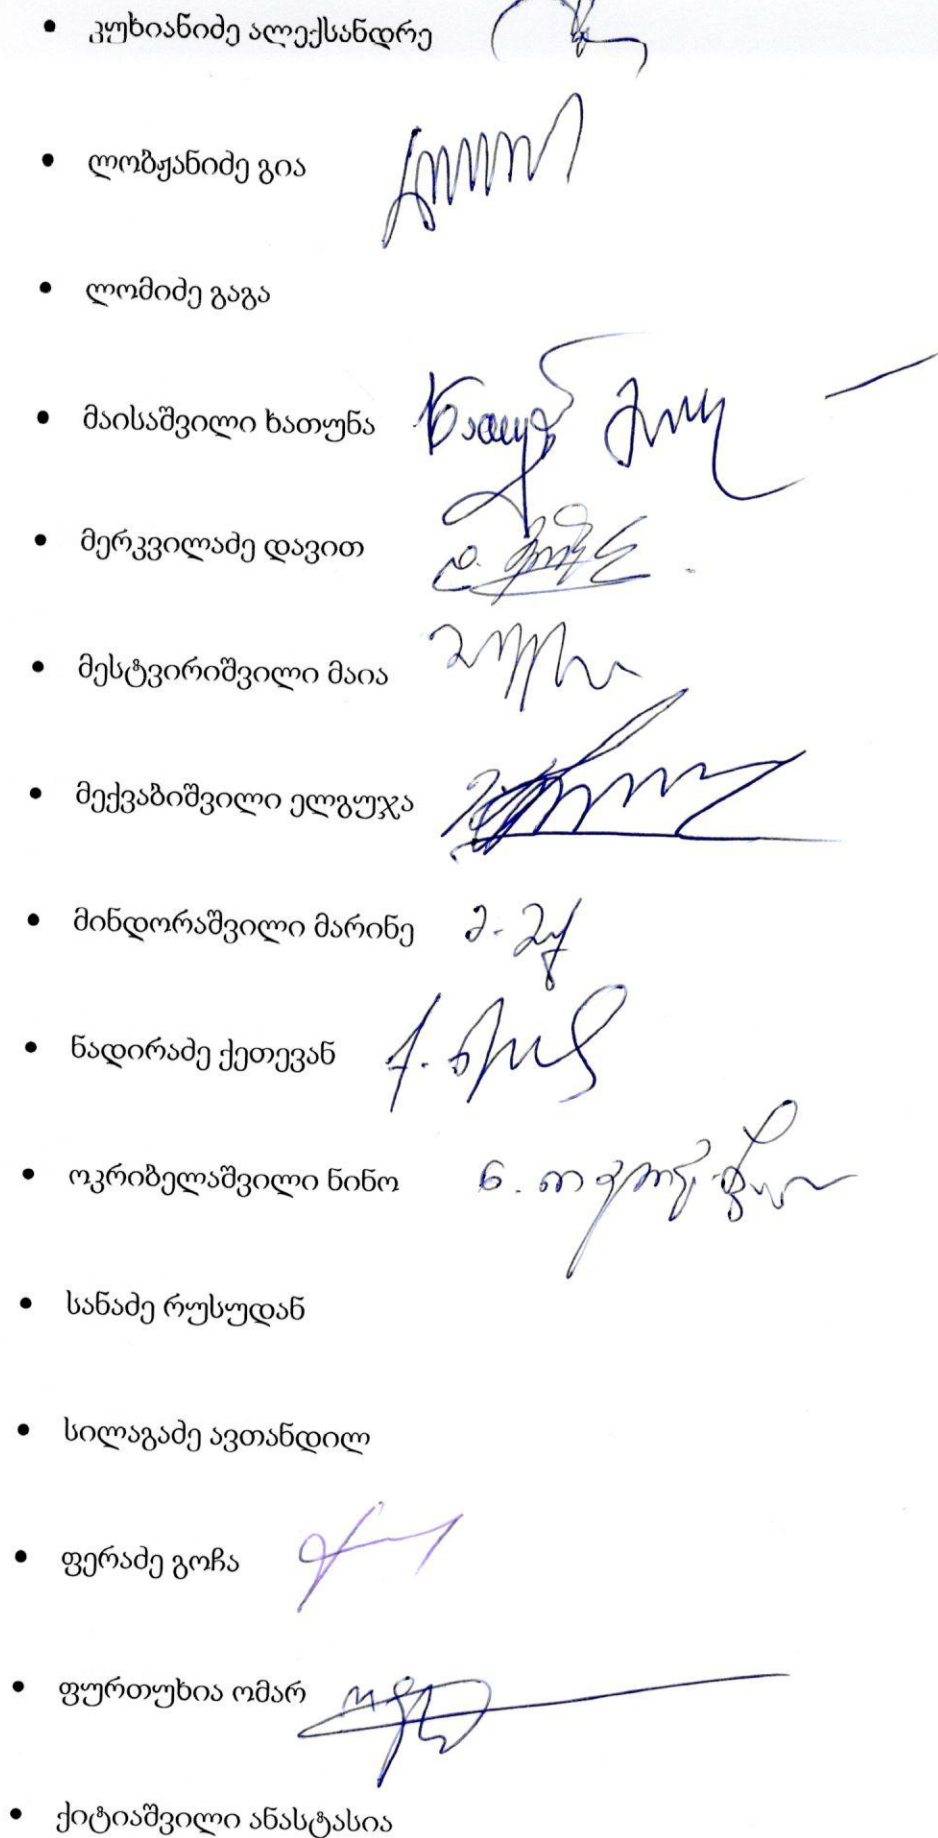 • კუხიანიძე ალექსანდრე
• ლობჟანიძე გია
• ლომიძე გაგა
• მაისაშვილი ხათუნა
• მერკვილაძე დავით
• მესტვირიშვილი მაია
• მექვაბიშვილი ელგუჯა
• მინდორაშვილი მარინე
• ნადირაძე ქეთევან
• ოკრიბელაშვილი ნინო
• სანაძე რუსუდან
• სილაგაძე ავთანდილ
• ფერაძე გოჩა
• ფურთუხია ომარ
• ქიტიაშვილი ანასტასია